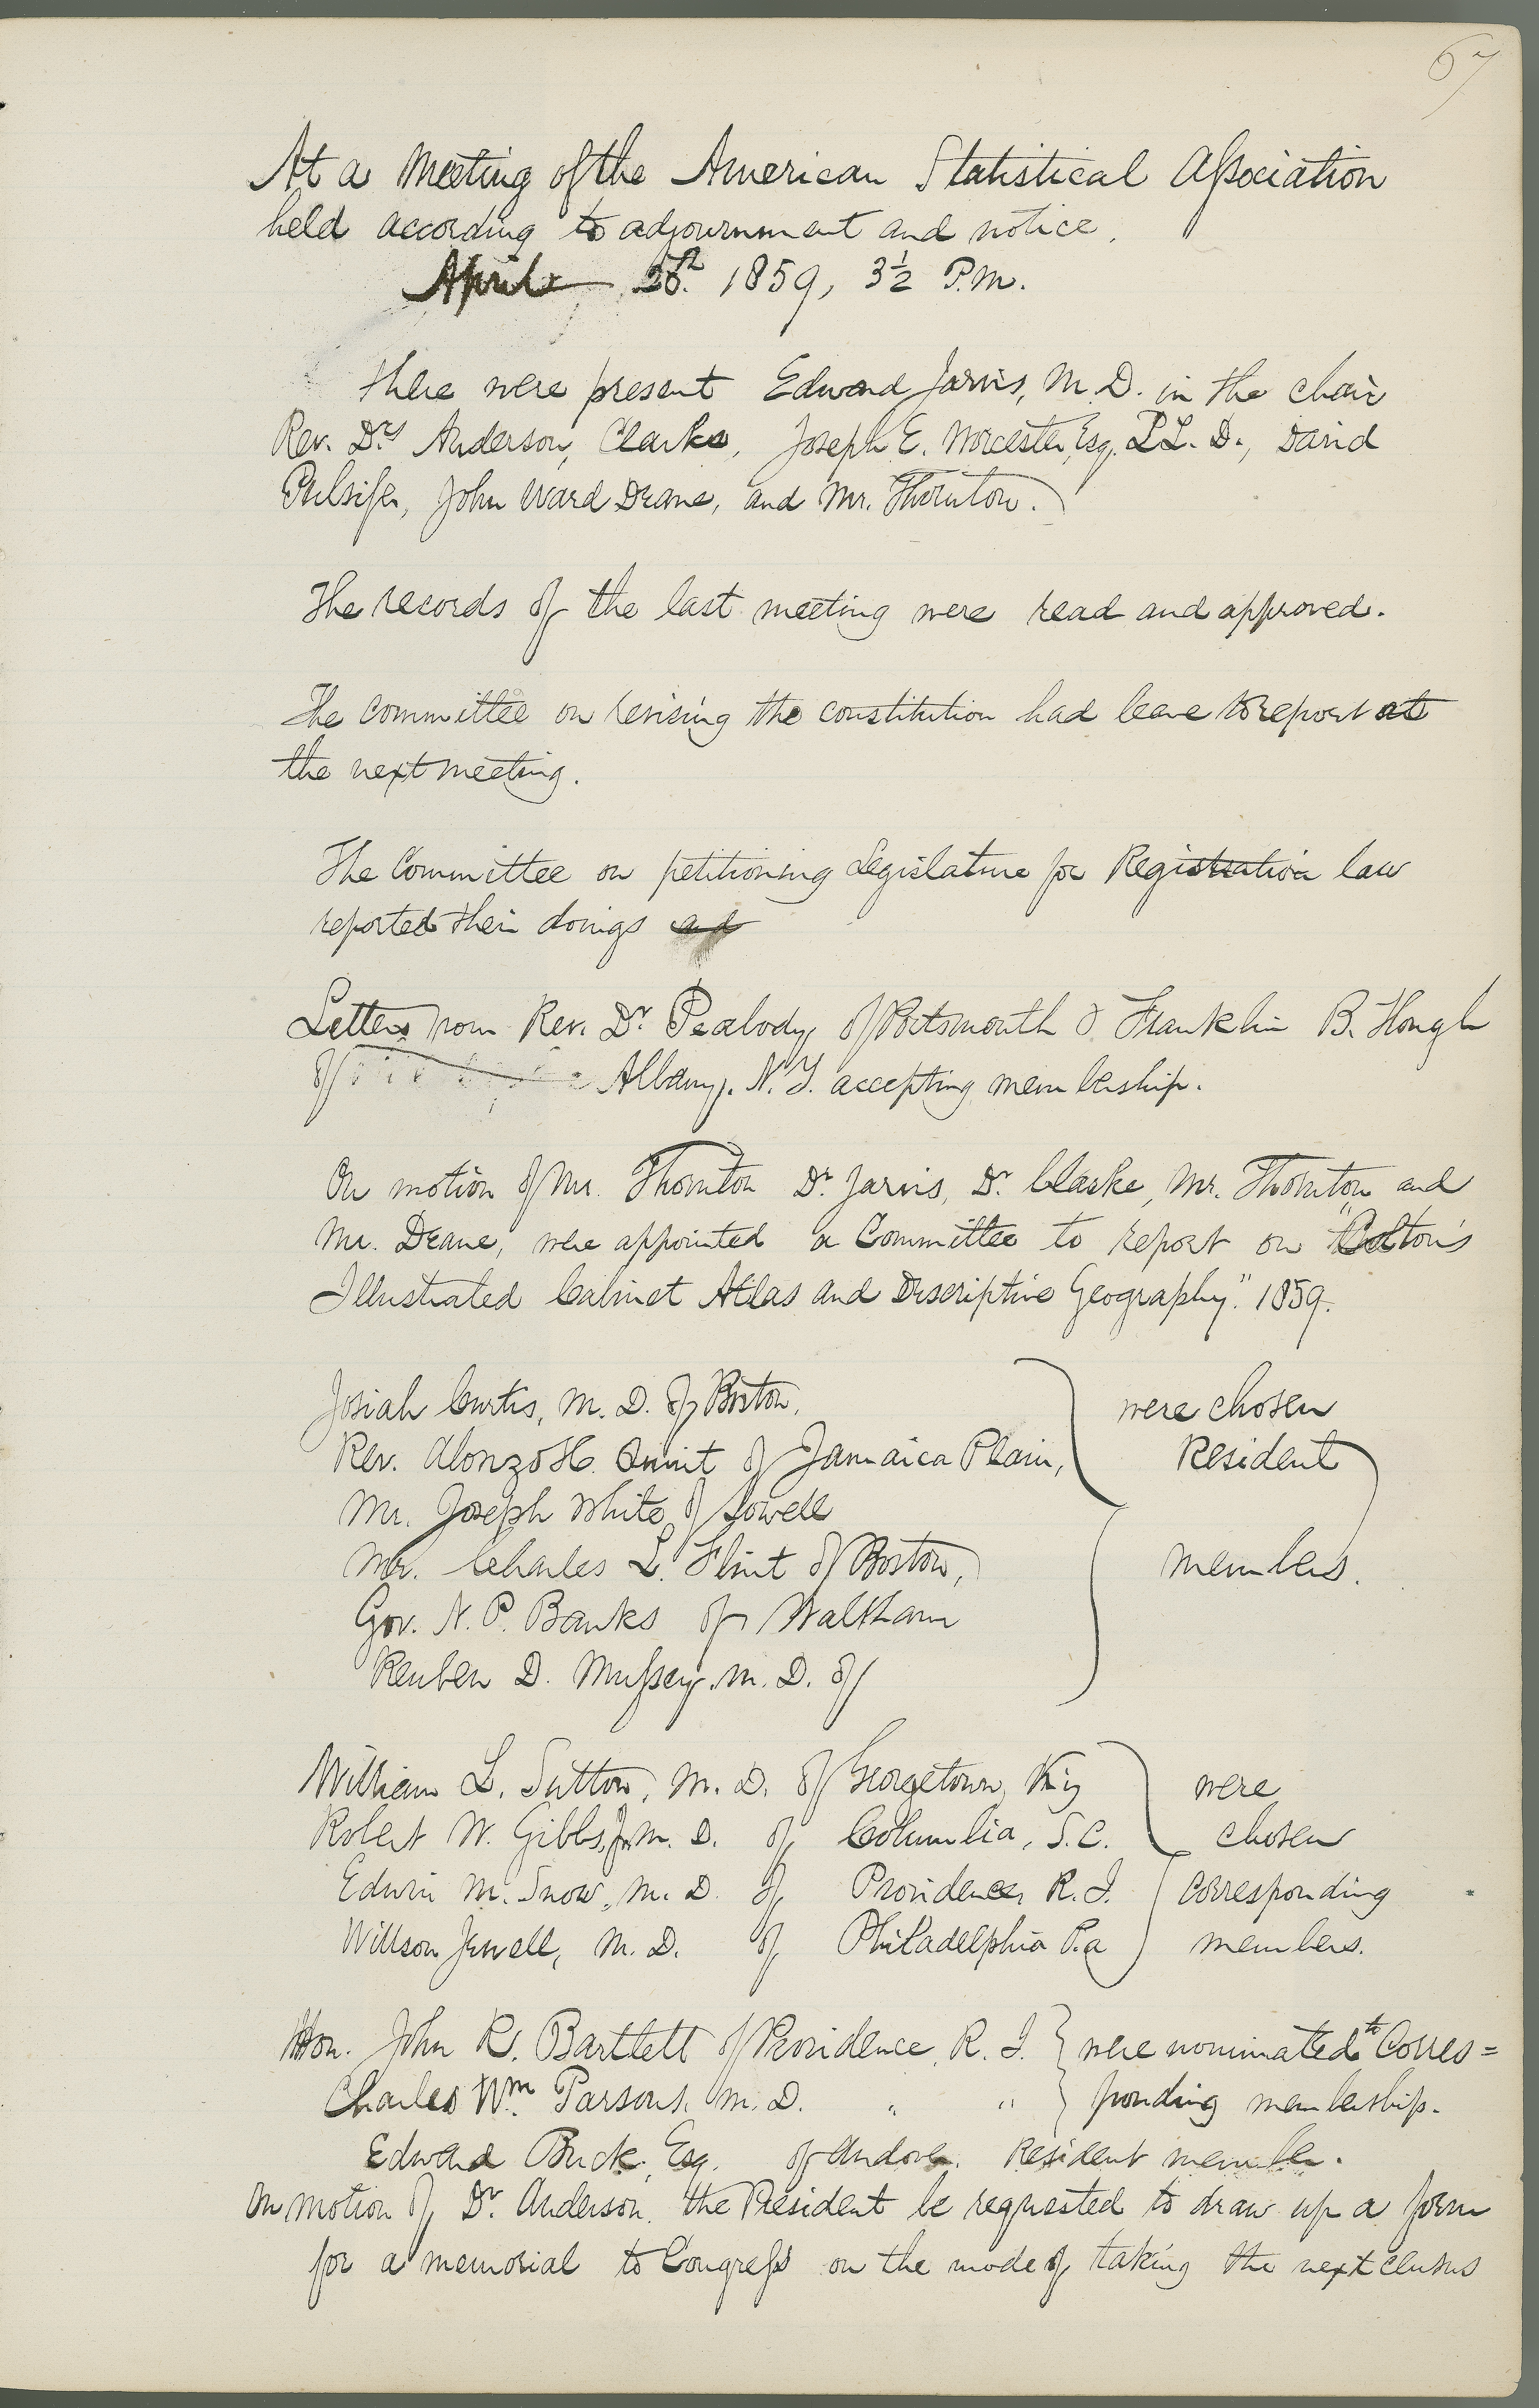 67
At a Meeting of the American Statistical Aſsociation
held according to adjournment and notice.
April 26th. 1859, 3½ P.M.
There were present Edward Jarvis, M.D. in the chair
Rev. Drs Anderson, Clarke, Joseph E. Worcester, Esq. LL.D., David
Pulsifer, John Ward Deane, and Mr. Thornton.
The records of the last meeting were read and approved.
The committee on revising the constitution had leave to report at
the next meeting.
The Committee on petitioning Legislature for Registration law
reported their doings
Letters from Rev. Dr Peabody of Portsmouth & Franklin B. Hough
of Albany, N.Y. accepting membership.
On motion of Mr. Thornton Dr. Jarvis, Dr. Clarke, Mr. Thornton, and
Mr. Deane, were appointed a Committee to report on "Colton's
Illustrated Cabinet Atlas and Descriptive Geography." 1859.
Josiah Curtis, M.D. of Boston, were chosen
Rev. Alonzo H. Quint of Jamaica Plain, Resident
Mr. Joseph White of Lowell
Mr. Charles L. Flint of Boston, members.
Gov. N.P. Banks of Waltham
Reuben D. Muſsey, M.D. of
William L. Sutton, M.D. of Georgetown, Ky were
Robert W. Gibbs, Jr. M.D. of Columbia, S.C. chosen
Edwin M. Snow, M.D. of Providence, R.I. corresponding
Willson Jewell, M.D. of Philadelphia Pa members.
Hon. John R. Bartlett of Providence, R.I. were nominated to Corres=
Charles Wm. Parsons, M.D. " " ponding membership.
Edward Buck, Esq. of Andover. Resident member.
On motion of Dr. Anderson, the President be requested to draw up a form
for a memorial to Congreſs on the mode of taking the next census